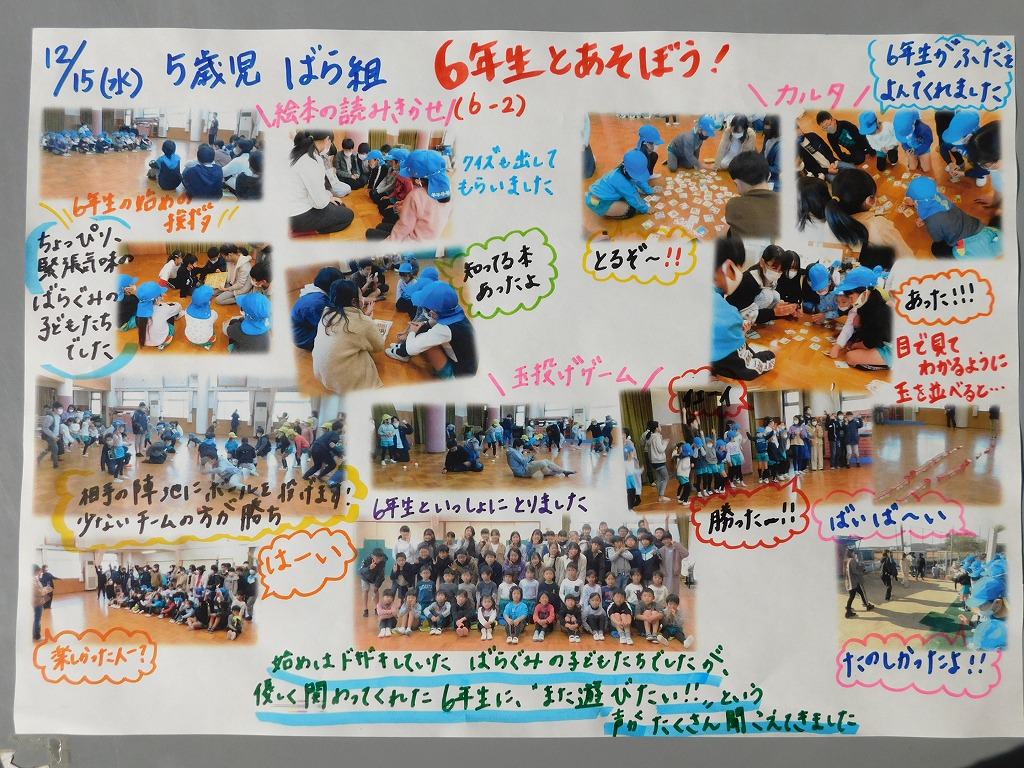 12/15(水) 5歳児 ばら組 6年生とあそぼう!
\絵本の読みきかせ/(6-2)
\カルタ/
6年生がふだを
よんでくれました
6年生の始めの
挨拶
クイズも出して
もらいました
ちょっぴり、
緊張気味の
ばらぐみの
子どもたち
でした
知ってる本
あったよ
とるぞ〜!!
あった!!!
\玉投げゲーム/
目で見て
わかるように
玉を並べると…
相手の陣地にボールを投げます!
少ないチームの方が勝ち
6年生といっしょにとりました
勝ったー!!
ばいば〜い
はーい
楽しかった人ー?
たのしかったよ!!
始めはドキドキしていた ばらぐみの子どもたちでしたが、
優しく関わってくれた6年生に、"また遊びたい!!"という
声がたくさん聞こえてきました